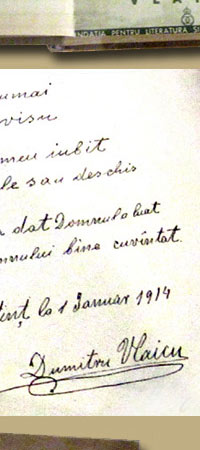 VLA
FUNDAȚIA PENTRU LITERATURĂ Ș
numai
visu
meu iubit
le sau deschis
dat Domnul o luat
mnului bine cuvîntat.
inț la 1 Januar 1914
Dumitru Vlaicu